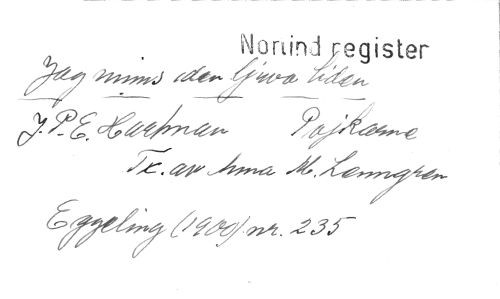 Norlind register
Jag mins den ljuva tiden
J.P.E. Hartman Pojkarne
Tx. av Anna M. Lenngren
Eggeling (1900) nr. 235